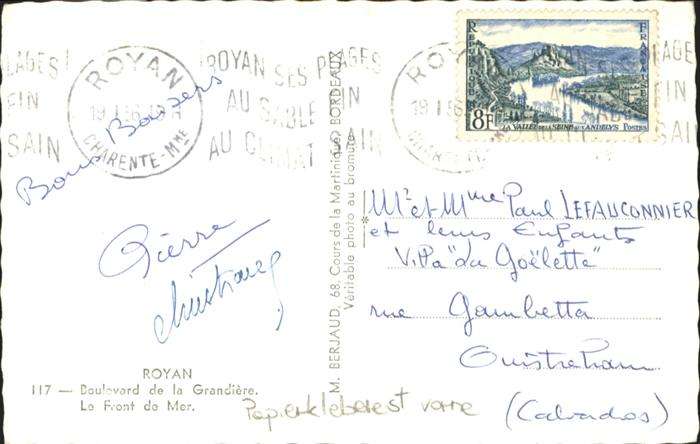 ROYAN
19-1 56
CHARENTE-Mme
LAGES!
FIN
SAIN
ROYAN SES PLAGES
AU SABLE FIN
AU CLIMAT SAIN
RÉPUBLIQUE FRANÇAISE
8F
LA VALLÉE DE LA SEINE AUX ANDELYS POSTES
Bons Baisers
Pierre
M. BERJAUD, 68, Cours de la Martinique, BORDEAUX
Véritable photo au bromure
Mr et Mme Paul LEFAUCONNIER
et leurs Enfants
Villa "La Goëlette"
rue Gambetta
Ouistreham
(Calvados)
ROYAN
117 — Boulevard de la Grandière.
Le Front de Mer.
Papierklebereст vorne